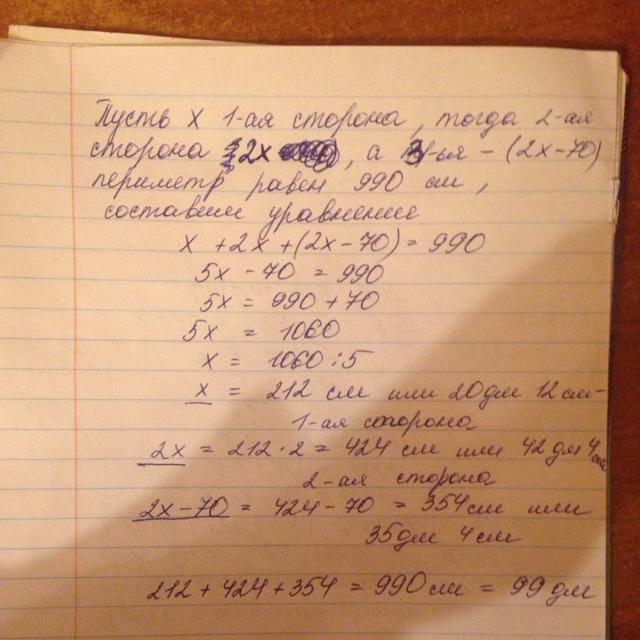 Пусть х 1-ая сторона, тогда 2-ая
сторона 2х, а 3-ья - (2х-70)
периметр равен 990 см,
составим уравнение
х + 2х + (2х - 70) = 990
5х - 70 = 990
5х = 990 + 70
5х = 1060
х = 1060 : 5
х = 212 см или 20 дм 12 см -
1-ая сторона
2х = 212 · 2 = 424 см или 42 дм 4 см
2-ая сторона
2х - 70 = 424 - 70 = 354 см или
35 дм 4 см
212 + 424 + 354 = 990 см = 99 дм